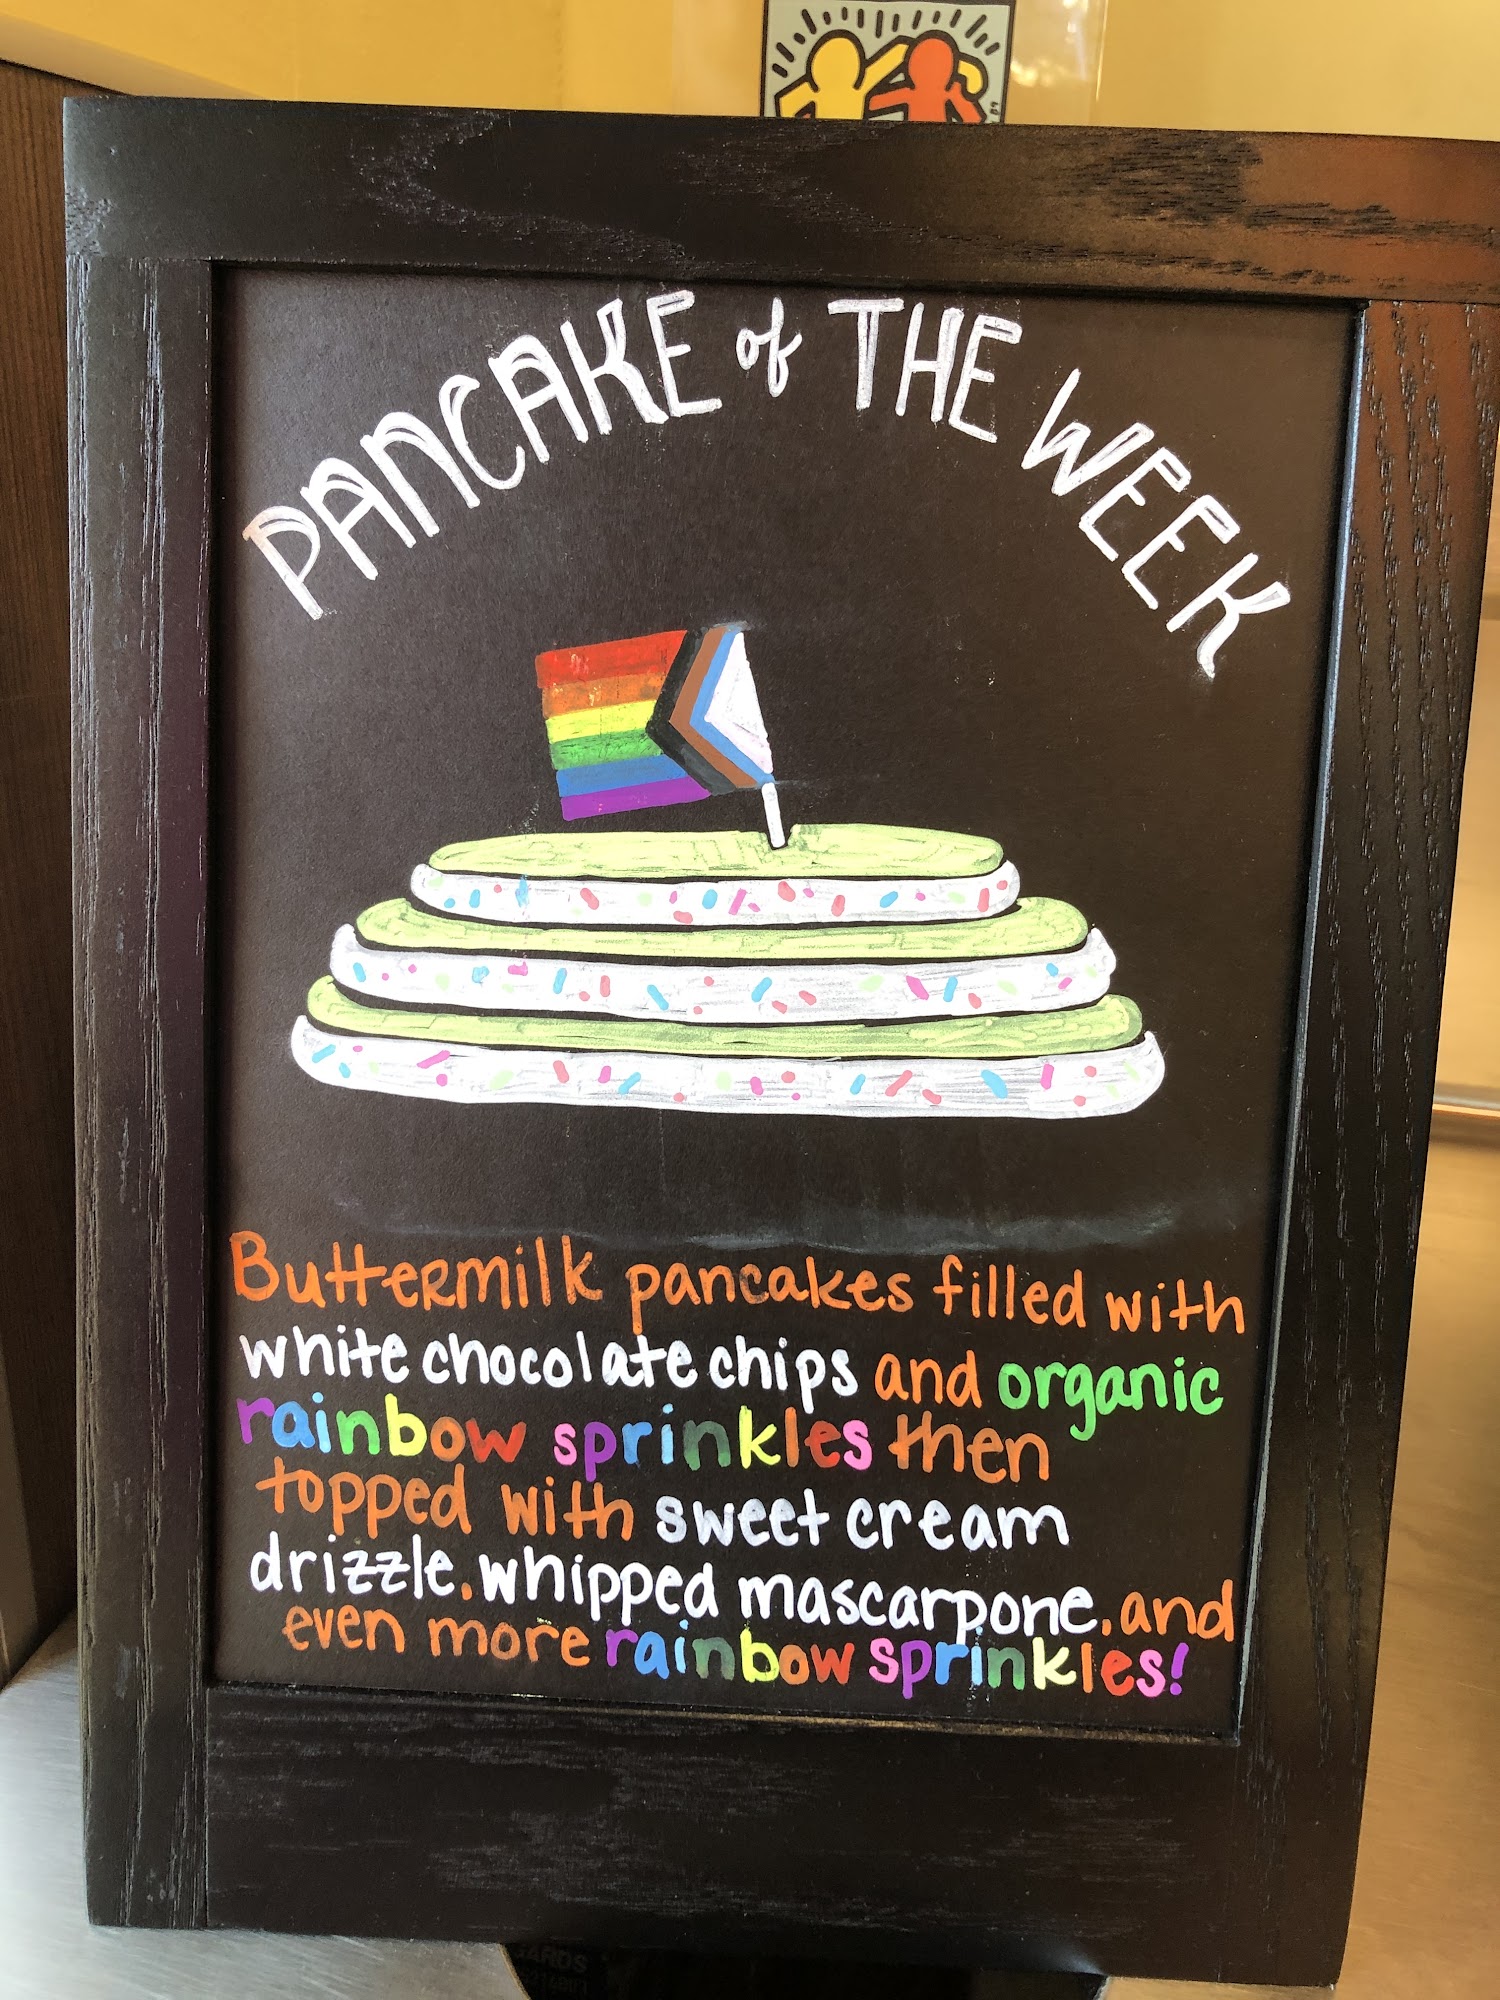 PANCAKE of THE WEEK
Buttermilk pancakes filled with
white chocolate chips and organic
rainbow sprinkles then
topped with sweet cream
drizzle, whipped mascarpone, and
even more rainbow sprinkles!